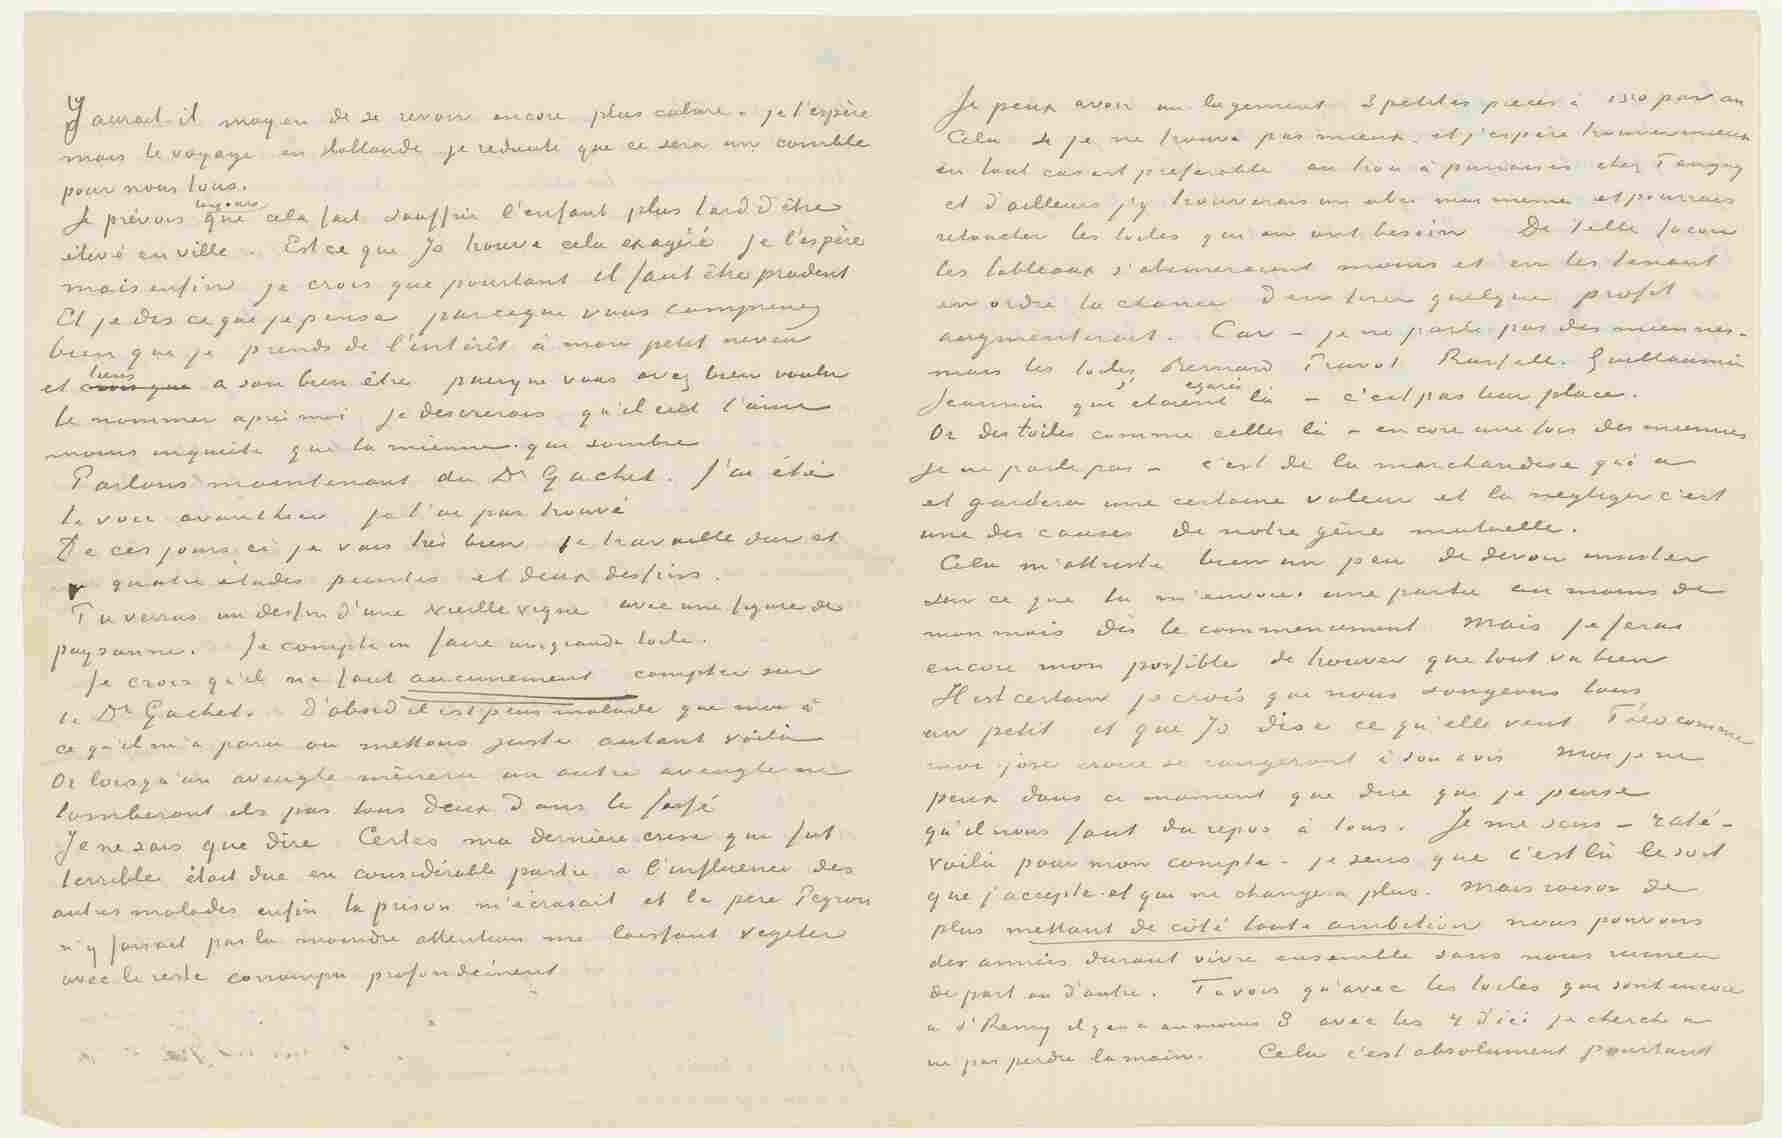 Y aurait-il moyen de se revoir encore plus calme. je l'espère
mais le voyage en Hollande je redoute que ce sera un comble
pour nous tous.
Je prévois toujours que cela fait souffrir l'enfant plus tard d'être
élevé en ville. Est ce que Jo trouve cela exagéré je l'espère
mais enfin je crois que pourtant il faut être prudent
Et je dis ce que je pense parceque vous comprenez
bien que je prends de l'intérêt à mon petit neveu
et tiens a son bien être puisque vous avez bien voulu
le nommer après moi je desirerais qu'il eut l'ame
moins inquiète que la mienne. qui sombre
Parlons maintenant du Dr Gachet. J'ai été
le voir avanthier je l'ai pas trouvé
De ces jours ci je vais très bien je travaille dur et
ai quatre études peintes et deux dessins.
Tu verras un dessin d'une vieille vigne avec une figure de
paysanne. Je compte en faire une grande toile.
Je crois qu'il ne faut aucunement compter sur
le Dr Gachet. D'abord il est plus malade que moi à
ce qu'il m'a paru ou mettons juste autant voilà
Or lorsqu'un aveugle mènera un autre aveugle ne
tomberont ils pas tous deux dans le fossé
Je ne sais que dire Certes ma dernière crise qui fut
terrible était due en considérable partie a l'influence des
autres malades enfin la prison m'écrasait et le pere Peyron
n'y faisait pas la moindre attention me laissant vegeter
avec le reste corrompu profondément
Je peux avoir un logement 3 petites pieces à 150 par an
Cela si je ne trouve pas mieux, et j'espère trouver mieux
en tout cas est preferable au trou à punaises chez Tanguy
et d'ailleurs j'y trouverais un abri moi meme et pourrais
retoucher les toiles qui en ont besoin De telle facon
les tableaux s'abimeraient moins et en les tenant
en ordre la chance d'en tirer quelque profit
augmenterait. Car – je ne parle pas des miennes –
mais les toiles Bernard Prevot Russell. Guillaumin
Jeannin qui s'étaient egarés là – c'est pas leur place.
Or des toiles comme celles là – encore une fois des miennes
Je ne parle pas – c'est de la marchandise qui a
et gardera une certaine valeur et la negliger c'est
une des causes de notre gêne mutuelle.
Cela m'attriste bien un peu de devoir insister
sur ce que tu m'envoies une partie au moins de
mon mois dès le commencement Mais je ferai
encore mon possible de trouver que tout va bien
Il est certain je crois que nous songeons tous
au petit et que Jo dise ce qu'elle veut Theo comme
moi j'ose croire se rangeront à son avis Moi je ne
peux dans ce moment que dire que je pense
qu'il nous faut du repos à tous. Je me sens – raté –
voilà pour mon compte – je sens que c'est là le sort
que j'accepte. et qui ne changera plus. Mais raison de
plus mettant de côté toute ambition nous pouvons
des années durant vivre ensemble sans nous ruiner
de part ou d'autre. Tu vois qu'avec les toiles qui sont encore
a St Remy il y en a au moins 8 avec les 4 d'ici je cherche a
ne pas perdre la main. Cela c'est absolument pourtant